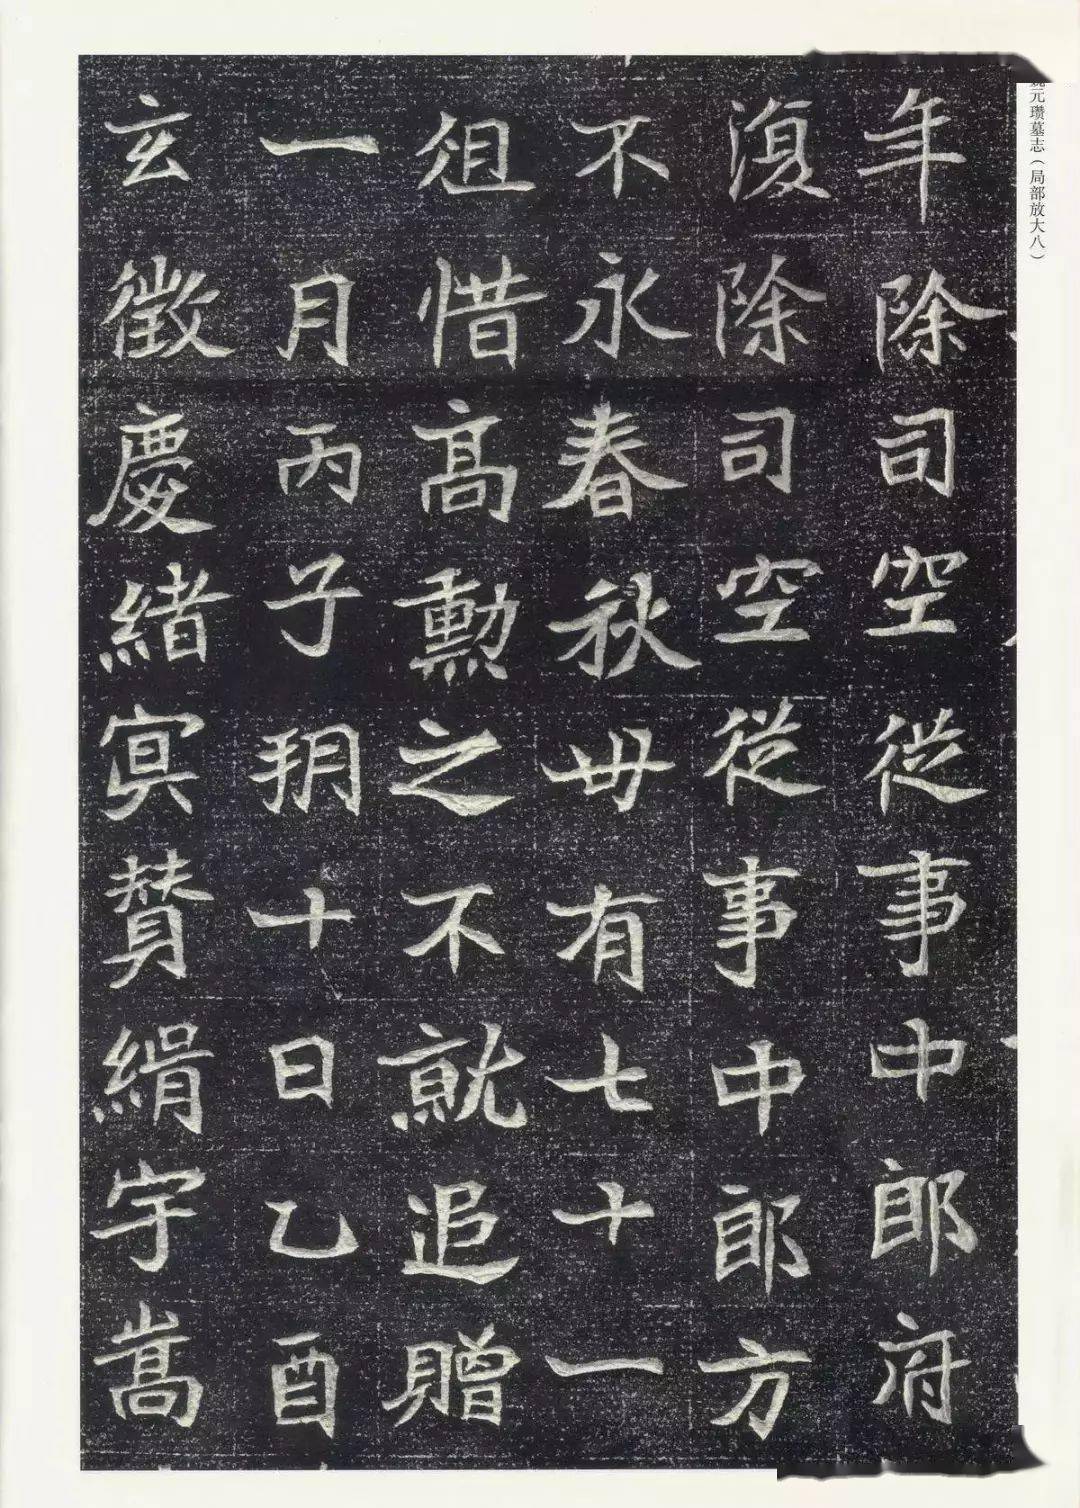 魏元瓚墓志（局部放大八）
年除司空從事中郎府
復除司空從事中郎方
不永春秋卌有七十一
徂惜高勳之不就追贈
一月丙子朔十日乙酉
玄徵慶緒冥贊縎宇嵩